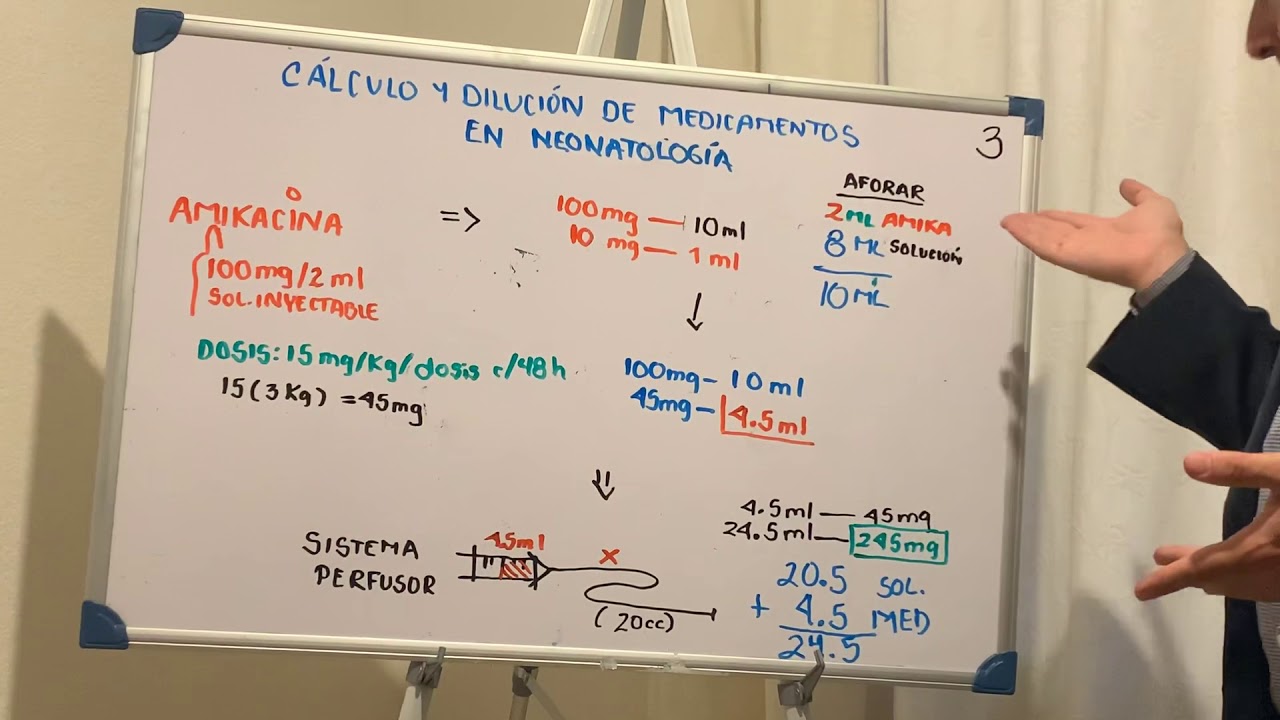 CÁLCULO Y DILUCIÓN DE MEDICAMENTOS
EN NEONATOLOGÍA
3
AMIKACINA
100mg/2 ml
SOL.INYECTABLE
DOSIS: 15 mg/Kg/dosis c/48h
15 (3 Kg) = 45mg
=>
100mg — 10ml
10 mg — 1 ml
AFORAR
2ML AMIKA
8 ML SOLUCIÓN
10 ML
100mg - 10 ml
45mg - 4.5ml
SISTEMA
PERFUSOR
4.5ml
X
(20cc)
4.5ml — 45mg
24.5ml — 245mg
20.5 SOL.
+ 4.5 MED
24.5